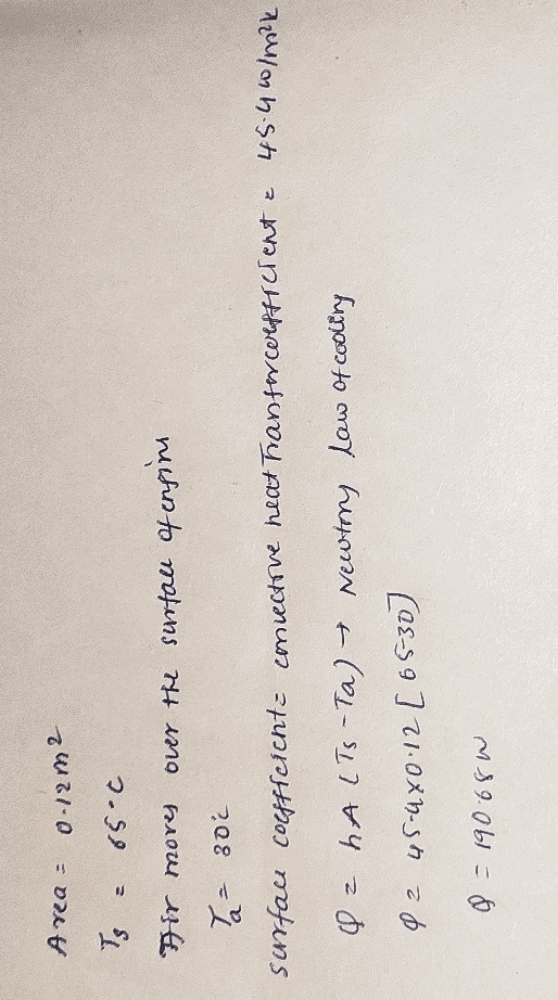 Area = 0.12 m²
Ts = 65°C
Air moves over the surface of engine
Ta = 30°C
surface coefficient = convective heat Transfer coefficient = 45.4 W/m²K
Q = hA (Ts - Ta) → Newtons law of cooling
Q = 45.4 x 0.12 [65-30]
Q = 190.68 W